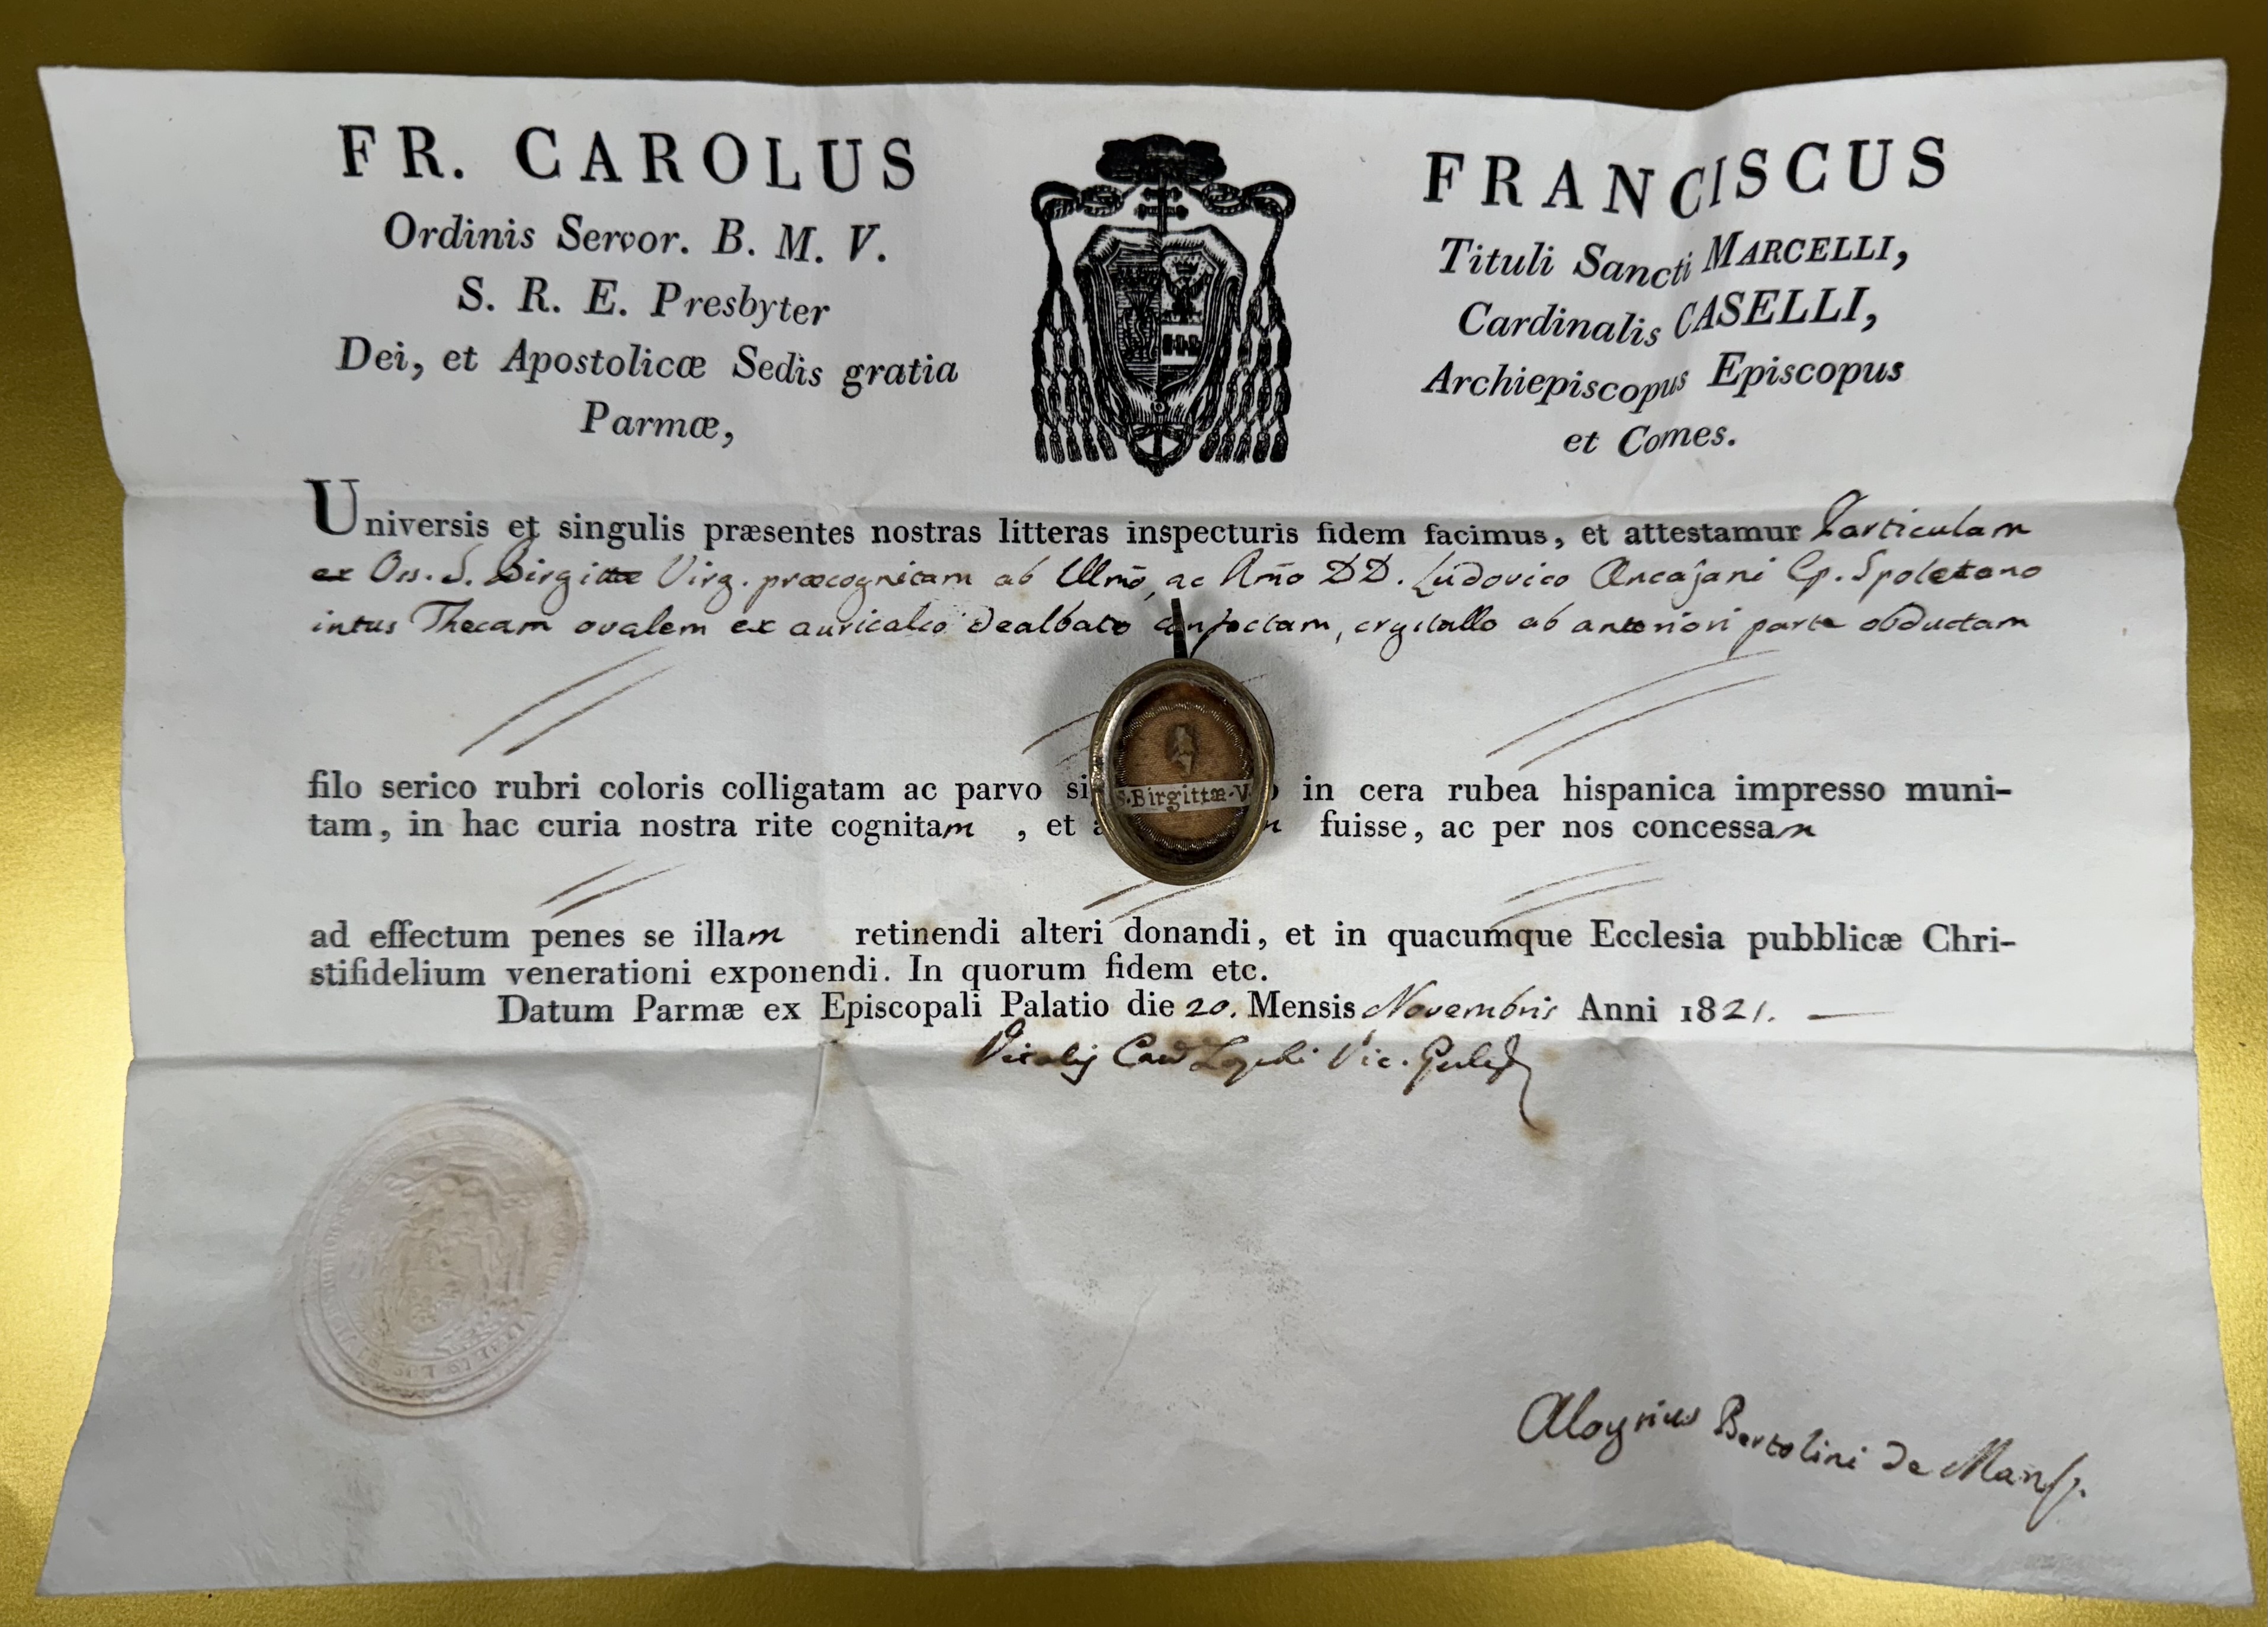 FR. CAROLUS
Ordinis Servor. B. M. V.
S. R. E. Presbyter
Dei, et Apostolicæ Sedis gratia
Parmæ,
FRANCISCUS
Tituli Sancti MARCELLI,
Cardinalis CASELLI,
Archiepiscopus Episcopus
et Comes.
Universis et singulis præsentes nostras litteras inspecturis fidem facimus, et attestamur Particulam
ex Oss. S. Birgittæ Virg. præcognitam ab Illmo, ac Rmo DD. Ludovico Ancajani Ep. Spoletano
intus Thecam ovalem ex auricalco dealbato confectam, crystallo ab anteriori parte obductam
filo serico rubri coloris colligatam ac parvo in cera rubea hispanica impresso muni-
tam, in hac curia nostra rite cognitam , et fuisse, ac per nos concessam
S. Birgittæ. V.
ad effectum penes se illam retinendi alteri donandi, et in quacumque Ecclesia pubblicæ Chri-
stifidelium venerationi exponendi. In quorum fidem etc.
Datum Parmæ ex Episcopali Palatio die 20. Mensis Novembris Anni 1821.
Vitalis Can Vic. Gerlis
Aloysius Bertolini de Mans.